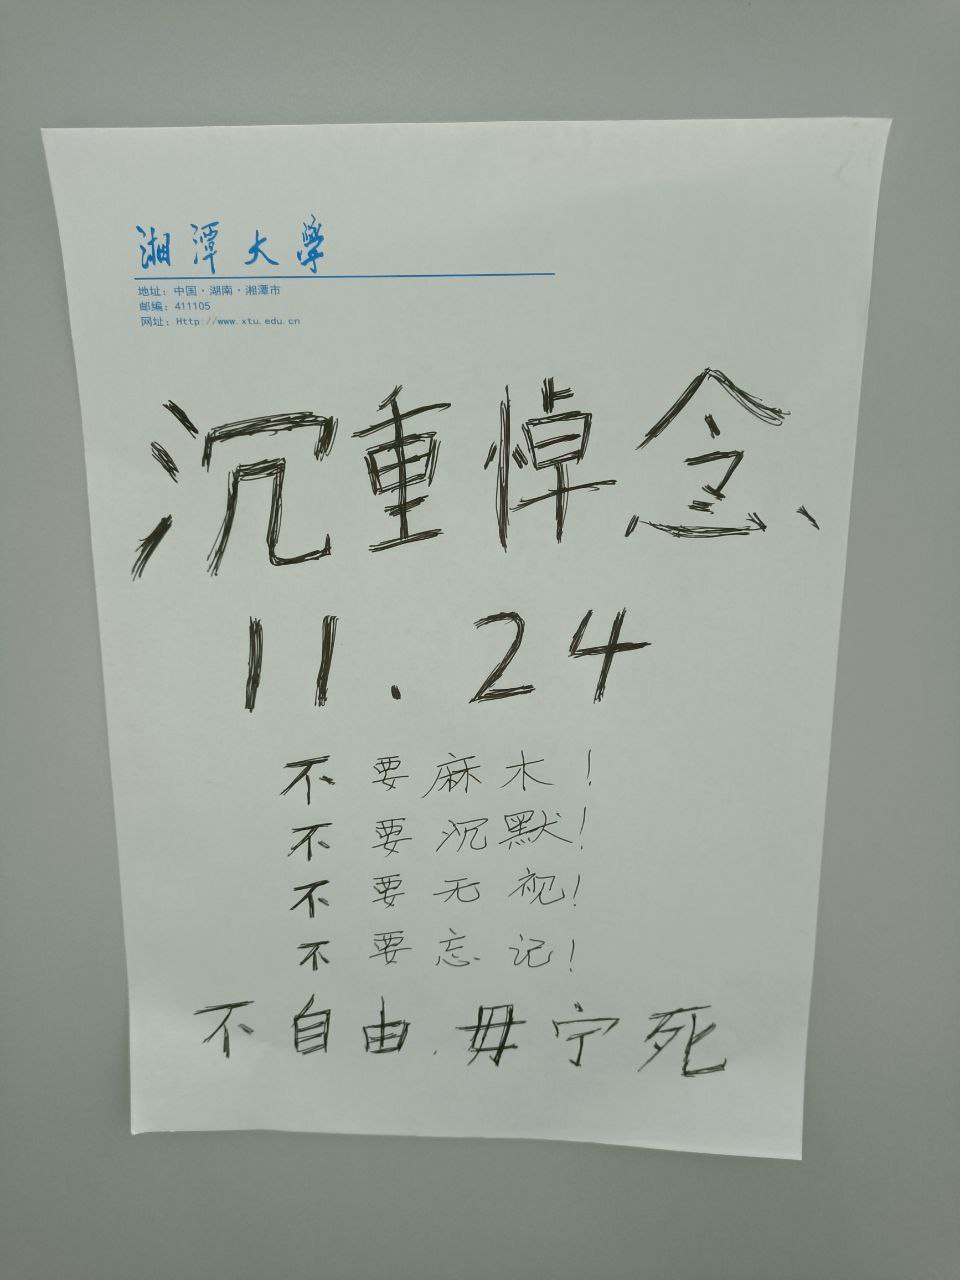 湘潭大學
地址：中国·湖南·湘潭市
邮编：411105
网址：Http://www.xtu.edu.cn
沉重悼念、
11.24
不要麻木！
不要沉默！
不要无视！
不要忘记！
不自由.毋宁死